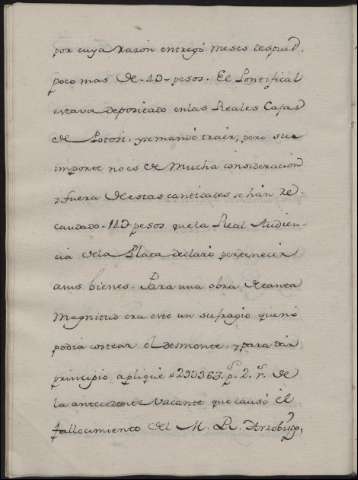 por cuya razon entregó meses despues
poco mas de 4D pesos. El Pontifical
estava depositado en las Reales Cajas
de Potosi, y se mandó traer, pero su
importe no es de mucha consideracion
y fuera de estas cantidades se hán re
caudado 11D pesos que la Real Audien
cia de la Plata declaró pertenecer
a sus bienes. Para una obra de tanta
magnitud era este un sufragio que nó
podia costear el desmonte, y para dar
principio apliqué 23U363. p.s 2. r.s de
la antecedente Vacante que causó el
fallecimiento del M. R. Arzobispo,